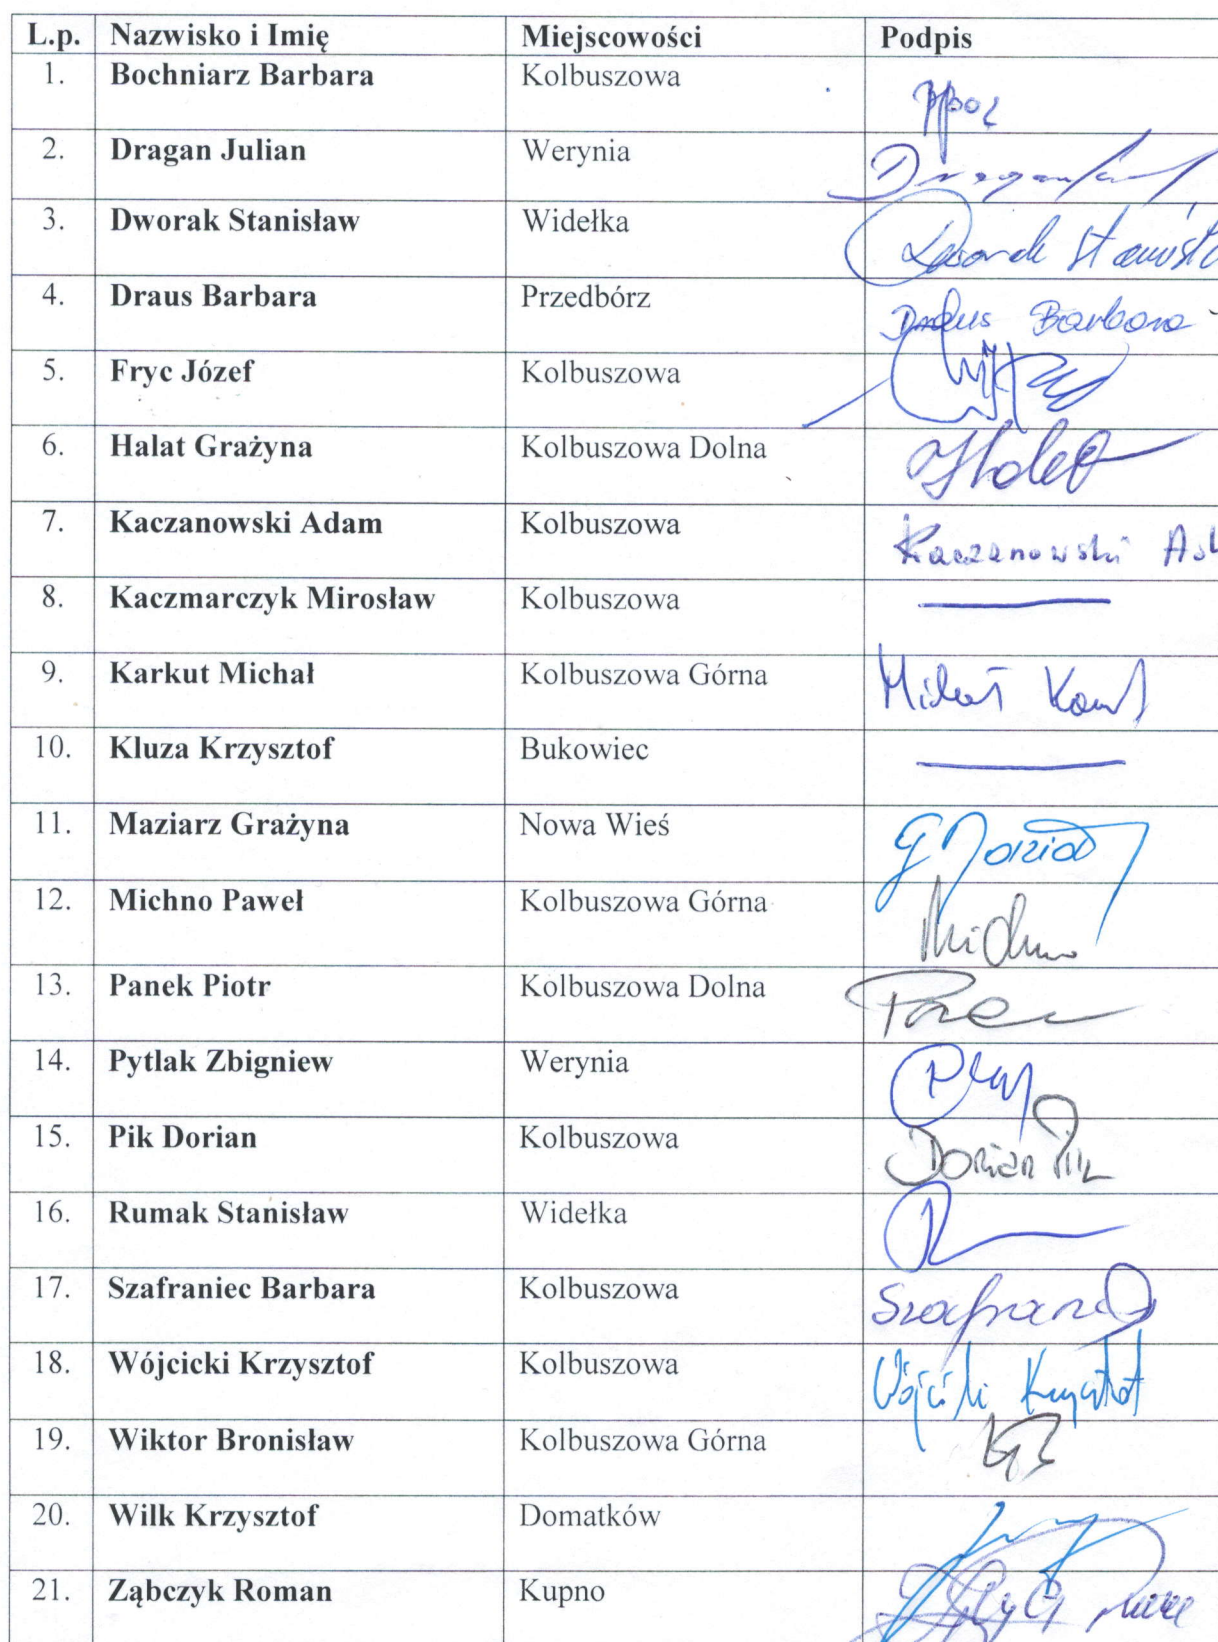 L.p. Nazwisko i Imię Miejscowości Podpis
1. Bochniarz Barbara Kolbuszowa
2. Dragan Julian Werynia Dragan
3. Dworak Stanisław Widełka Dworak Stanisła
4. Draus Barbara Przedbórz Draus Barbara
5. Fryc Józef Kolbuszowa
6. Halat Grażyna Kolbuszowa Dolna
7. Kaczanowski Adam Kolbuszowa Kaczanowski
8. Kaczmarczyk Mirosław Kolbuszowa
9. Karkut Michał Kolbuszowa Górna Michał
10. Kluza Krzysztof Bukowiec
11. Maziarz Grażyna Nowa Wieś
12. Michno Paweł Kolbuszowa Górna Michno
13. Panek Piotr Kolbuszowa Dolna
14. Pytlak Zbigniew Werynia
15. Pik Dorian Kolbuszowa Dorian Pik
16. Rumak Stanisław Widełka
17. Szafraniec Barbara Kolbuszowa
18. Wójcicki Krzysztof Kolbuszowa Wójcicki Krzysztof
19. Wiktor Bronisław Kolbuszowa Górna
20. Wilk Krzysztof Domatków
21. Ząbczyk Roman Kupno